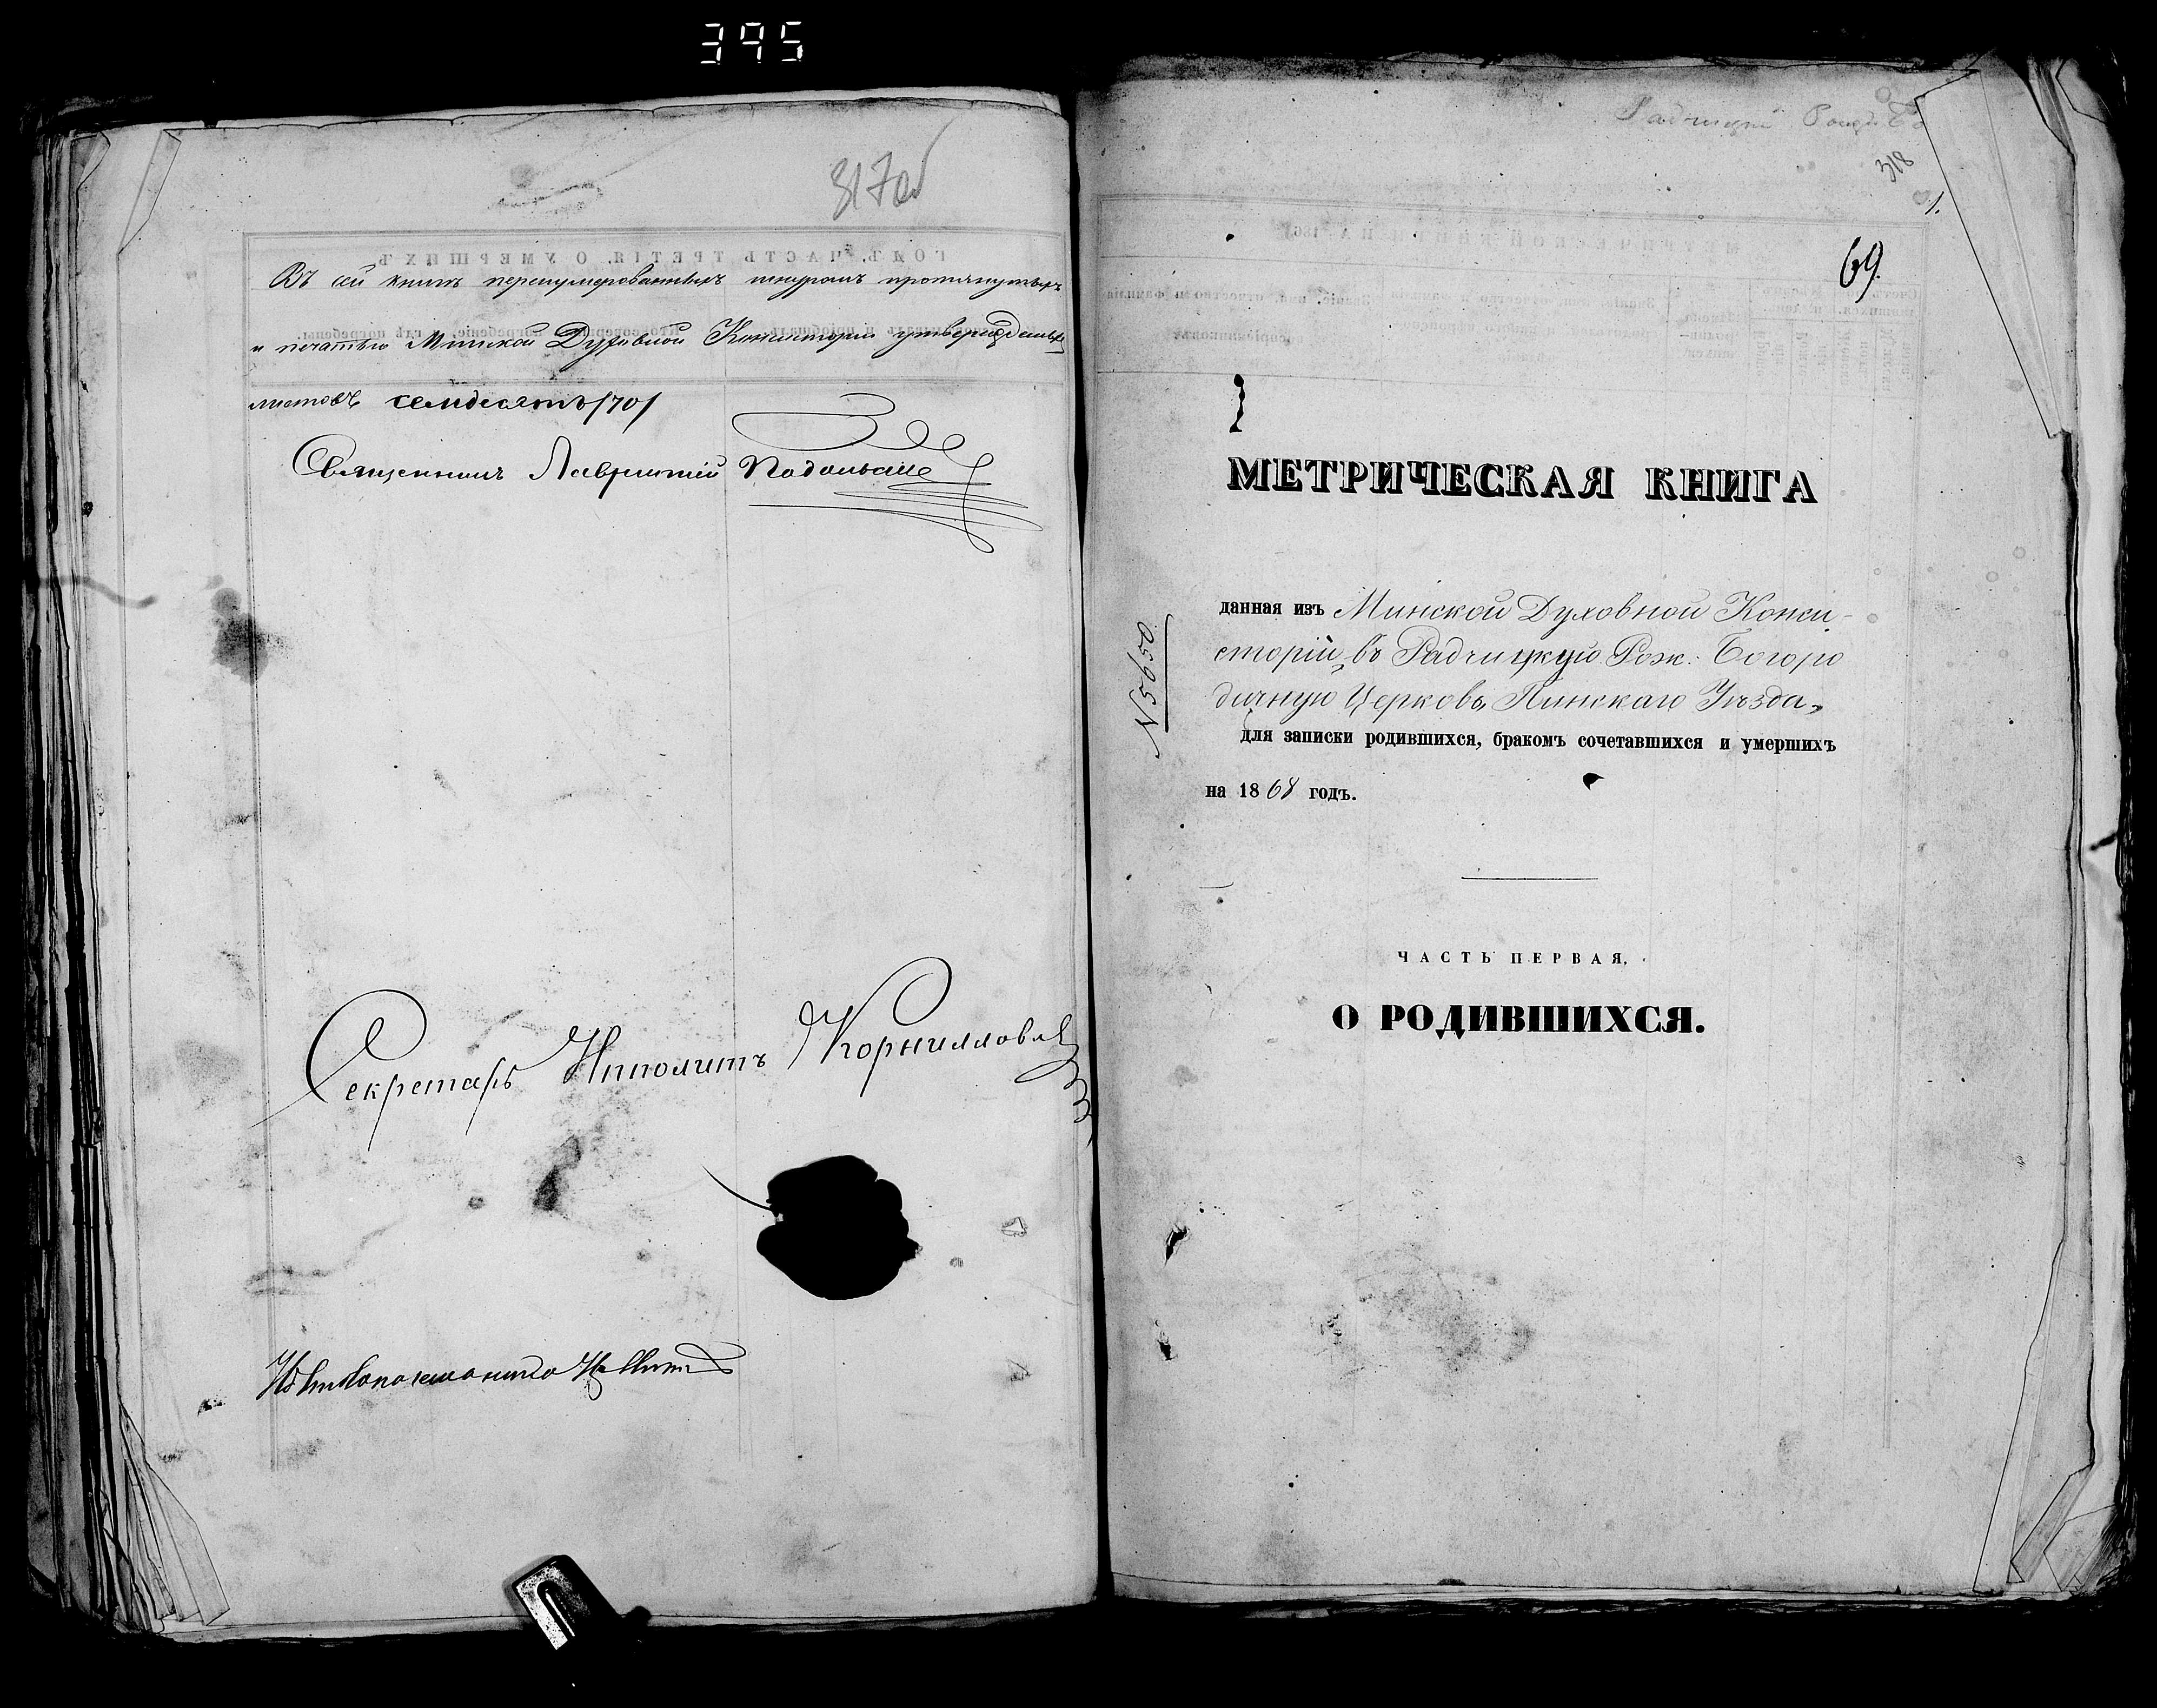 395
317об
Въ сей книгѣ перенумерованныхъ шнуромъ протянутыхъ
и печатью Минской Духовной Консисторіи утвержденныхъ
листовъ семдесятъ /70/
Священникъ Лаврентій
Секретарь Ипполитъ Корниллов
318
1.
69.
МЕТРИЧЕСКАЯ КНИГА
N 5650
данная изъ Минской Духовной Конси-
сторіи, въ Радчицкую Рож. Богоро
дичную Церковь, Пинскаго Уѣзда,
для записки родившихся, бракомъ сочетавшихся и умершихъ
на 1868 годъ.
ЧАСТЬ ПЕРВАЯ,
О РОДИВШИХСЯ.